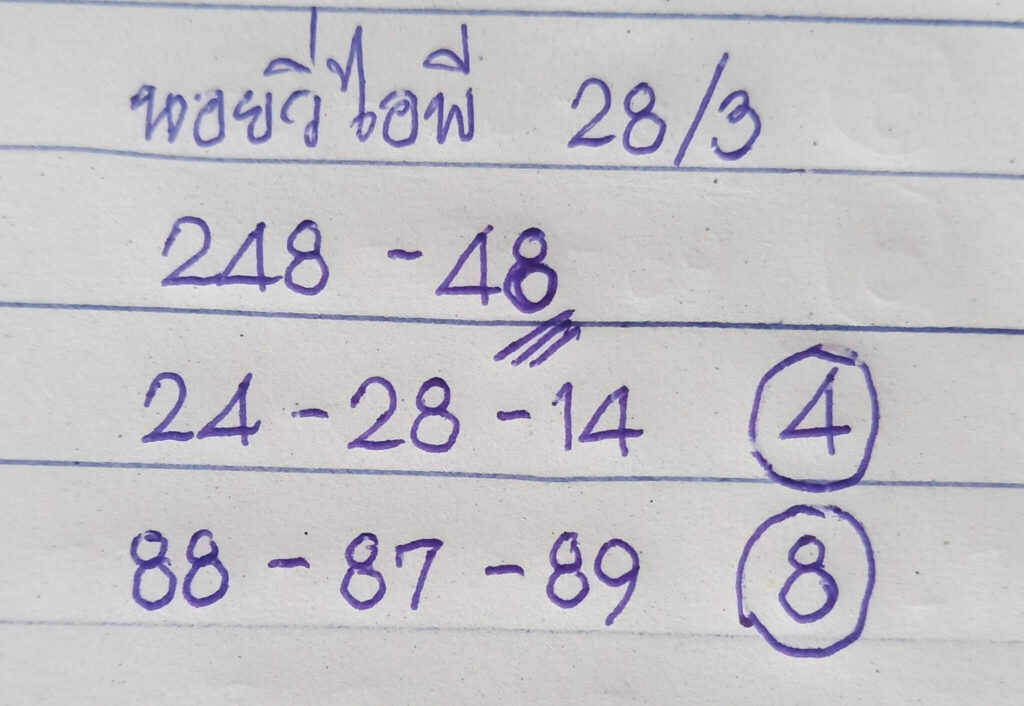 หอยวีไอพี 28/3
248 - 48
24 - 28 - 14 4
88 - 87 - 89 8